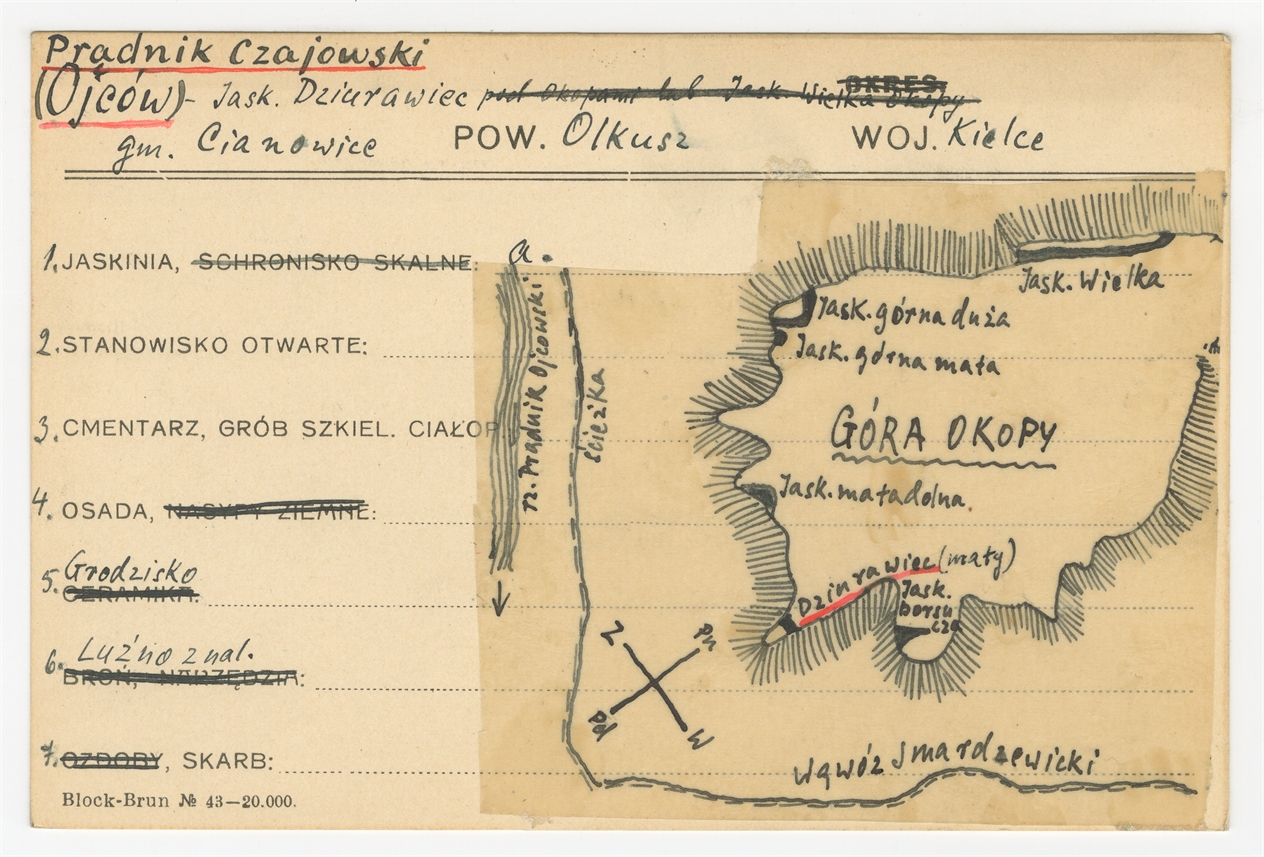 Prądnik Czajowski
(Ojców) - Jask. Dziurawiec pod Okopami lub Jask. Wielka Okopy
OKRES
gm. Cianowice POW. Olkusz WOJ. Kielce
1. JASKINIA, SCHRONISKO SKALNE: a.
2. STANOWISKO OTWARTE:
3. CMENTARZ, GRÓB SZKIEL. CIAŁOP
4. OSADA, NASYPY ZIEMNE:
5. Grodzisko
CERAMIKA:
6. Luźno znal.
BROŃ, NARZĘDZIA:
7. OZDOBY, SKARB:
Block-Brun № 43—20.000.
rz. Prądnik Ojcowski
ścieżka
Jask. Wielka
Jask. górna duża
Jask. górna mała
GÓRA OKOPY
Jask. mała dolna.
Dziurawiec (mały)
Jask.
borsu
cza
Z
Pn
Pd
W
Wąwóz Smardzewicki